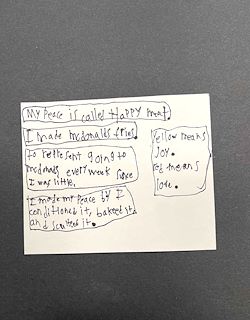 My Peace is called HAPPY meat.
I made mcdonalds fries.
to represent going to
mcdonalds every week since
I was little.
I made my Peace by I
conditioned it, baked it
and scultted it.
Yellow means
Joy.
red means
love.